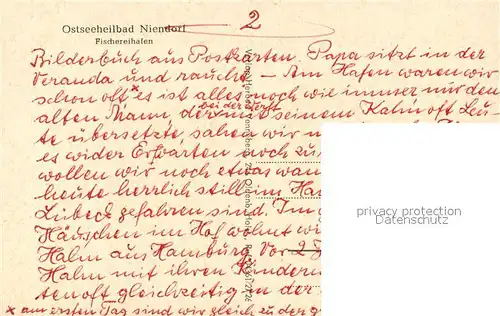 2
Ostseeheilbad Niendorf
Fischereihafen
Bilderbuch aus Postkarten. Papa sitzt in der
Veranda und raucht. – Am Hafen waren wir
schon oft × es ist alles noch wie immer nur den
alten Mann, der bei der Werft mit seinem Kahn oft Leu-
te übersetzte, sahen wir
es wider Erwarten noch zu
wollen wir noch etwas
heute herrlich still im
Lübeck gefahren sind.
Häuschen im Hof wohnt
Hahn aus Hamburg. Vor 2
Hahn mit ihren Kindern
ten oft gleichzeitig in der
× am ersten Tag sind wir gleich zu der
privacy protection
Datenschutz